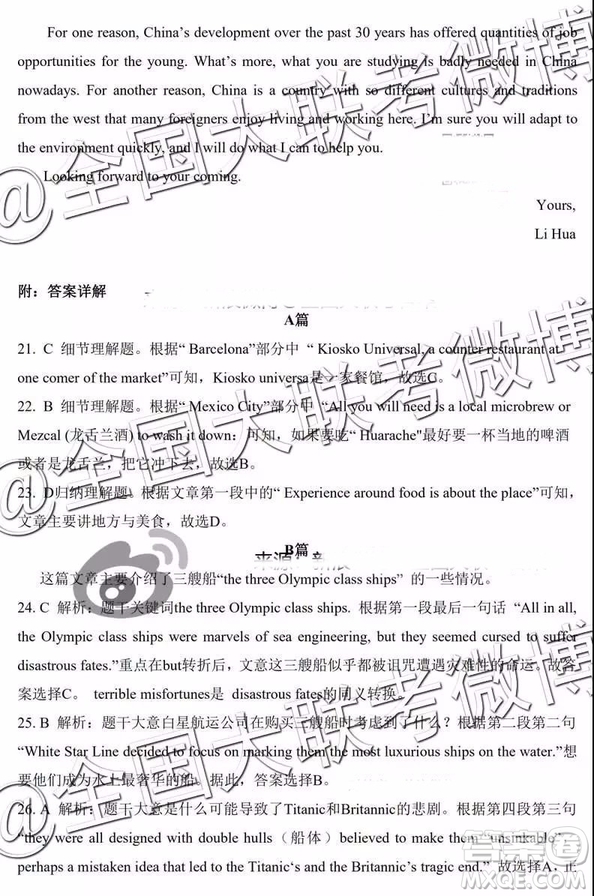 For one reason, China's development over the past 30 years has offered quantities of job
opportunities for the young. What's more, what you are studying Is badly needed in China
nowadays. For another reason, China is a country with so different cultures and traditions
from the west that many foreigners enjoy living and working here. I'm sure you will adapt to
the environment quickly, and I will do what I can to help you.
Looking forward to your coming.
Yours,
Li Hua
附：答案详解
A篇
21. C 细节理解题。根据“ Barcelona”部分中 “ Kiosko Universal, a counter restaurant at
one comer of the market”可知，Kiosko universa是一家餐馆，故选C。
22. B 细节理解题。根据“ Mexico City”部分中 “All you will need is a local microbrew or
Mezcal (龙舌兰酒) to wash it down：可知，如果要吃“ Huarache”最好要一杯当地的啤酒
或者是龙舌兰，把它冲下去，故选B。
23. D归纳理解题。根据文章第一段中的“ Experience around food is about the place”可知，
文章主要讲地方与美食，故选D。
B篇
这篇文章主要介绍了三艘船“the three Olympic class ships” 的一些情况。
24. C 解析：题干关键词the three Olympic class ships. 根据第一段最后一句话 “All in all,
the Olympic class ships were marvels of sea engineering, but they seemed cursed to suffer
disastrous fates.”重点在but转折后，文意这三艘船似乎都被诅咒遭遇灾难性的命运。故答
案选择C。 terrible misfortunes是 disastrous fates的同义转换。
25. B 解析：题干大意白星航运公司在购买三艘船时考虑到了什么？根据第二段第二句
“White Star Line decided to focus on making them the most luxurious ships on the water.”想
要把他们成为水上最奢华的船。据此，答案选择B。
26. A 解析：题干大意是什么可能导致了Titanic和Britannic的悲剧。根据第四段第三句
“they were all designed with double hulls（船体）believed to make them “unsinkable”,
perhaps a mistaken idea that led to the Titanic‘s and the Britannic's tragic end.” 故选择A，正
@全国大联考微博
@全国大联考微博
@全国大联考微博